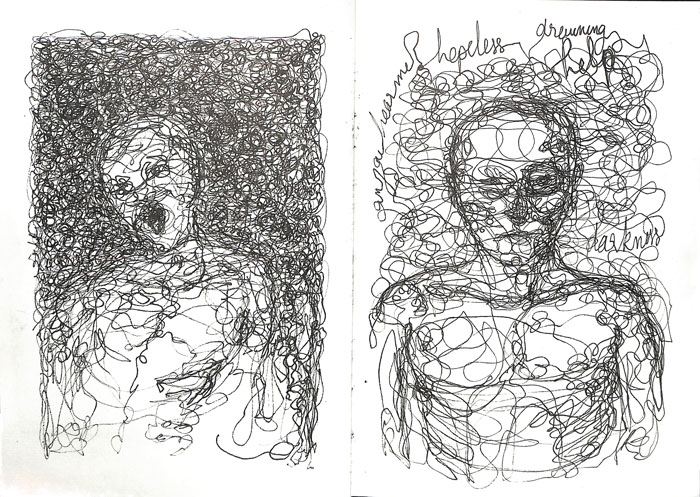 can you hear me? hopeless drowning
help
darkness